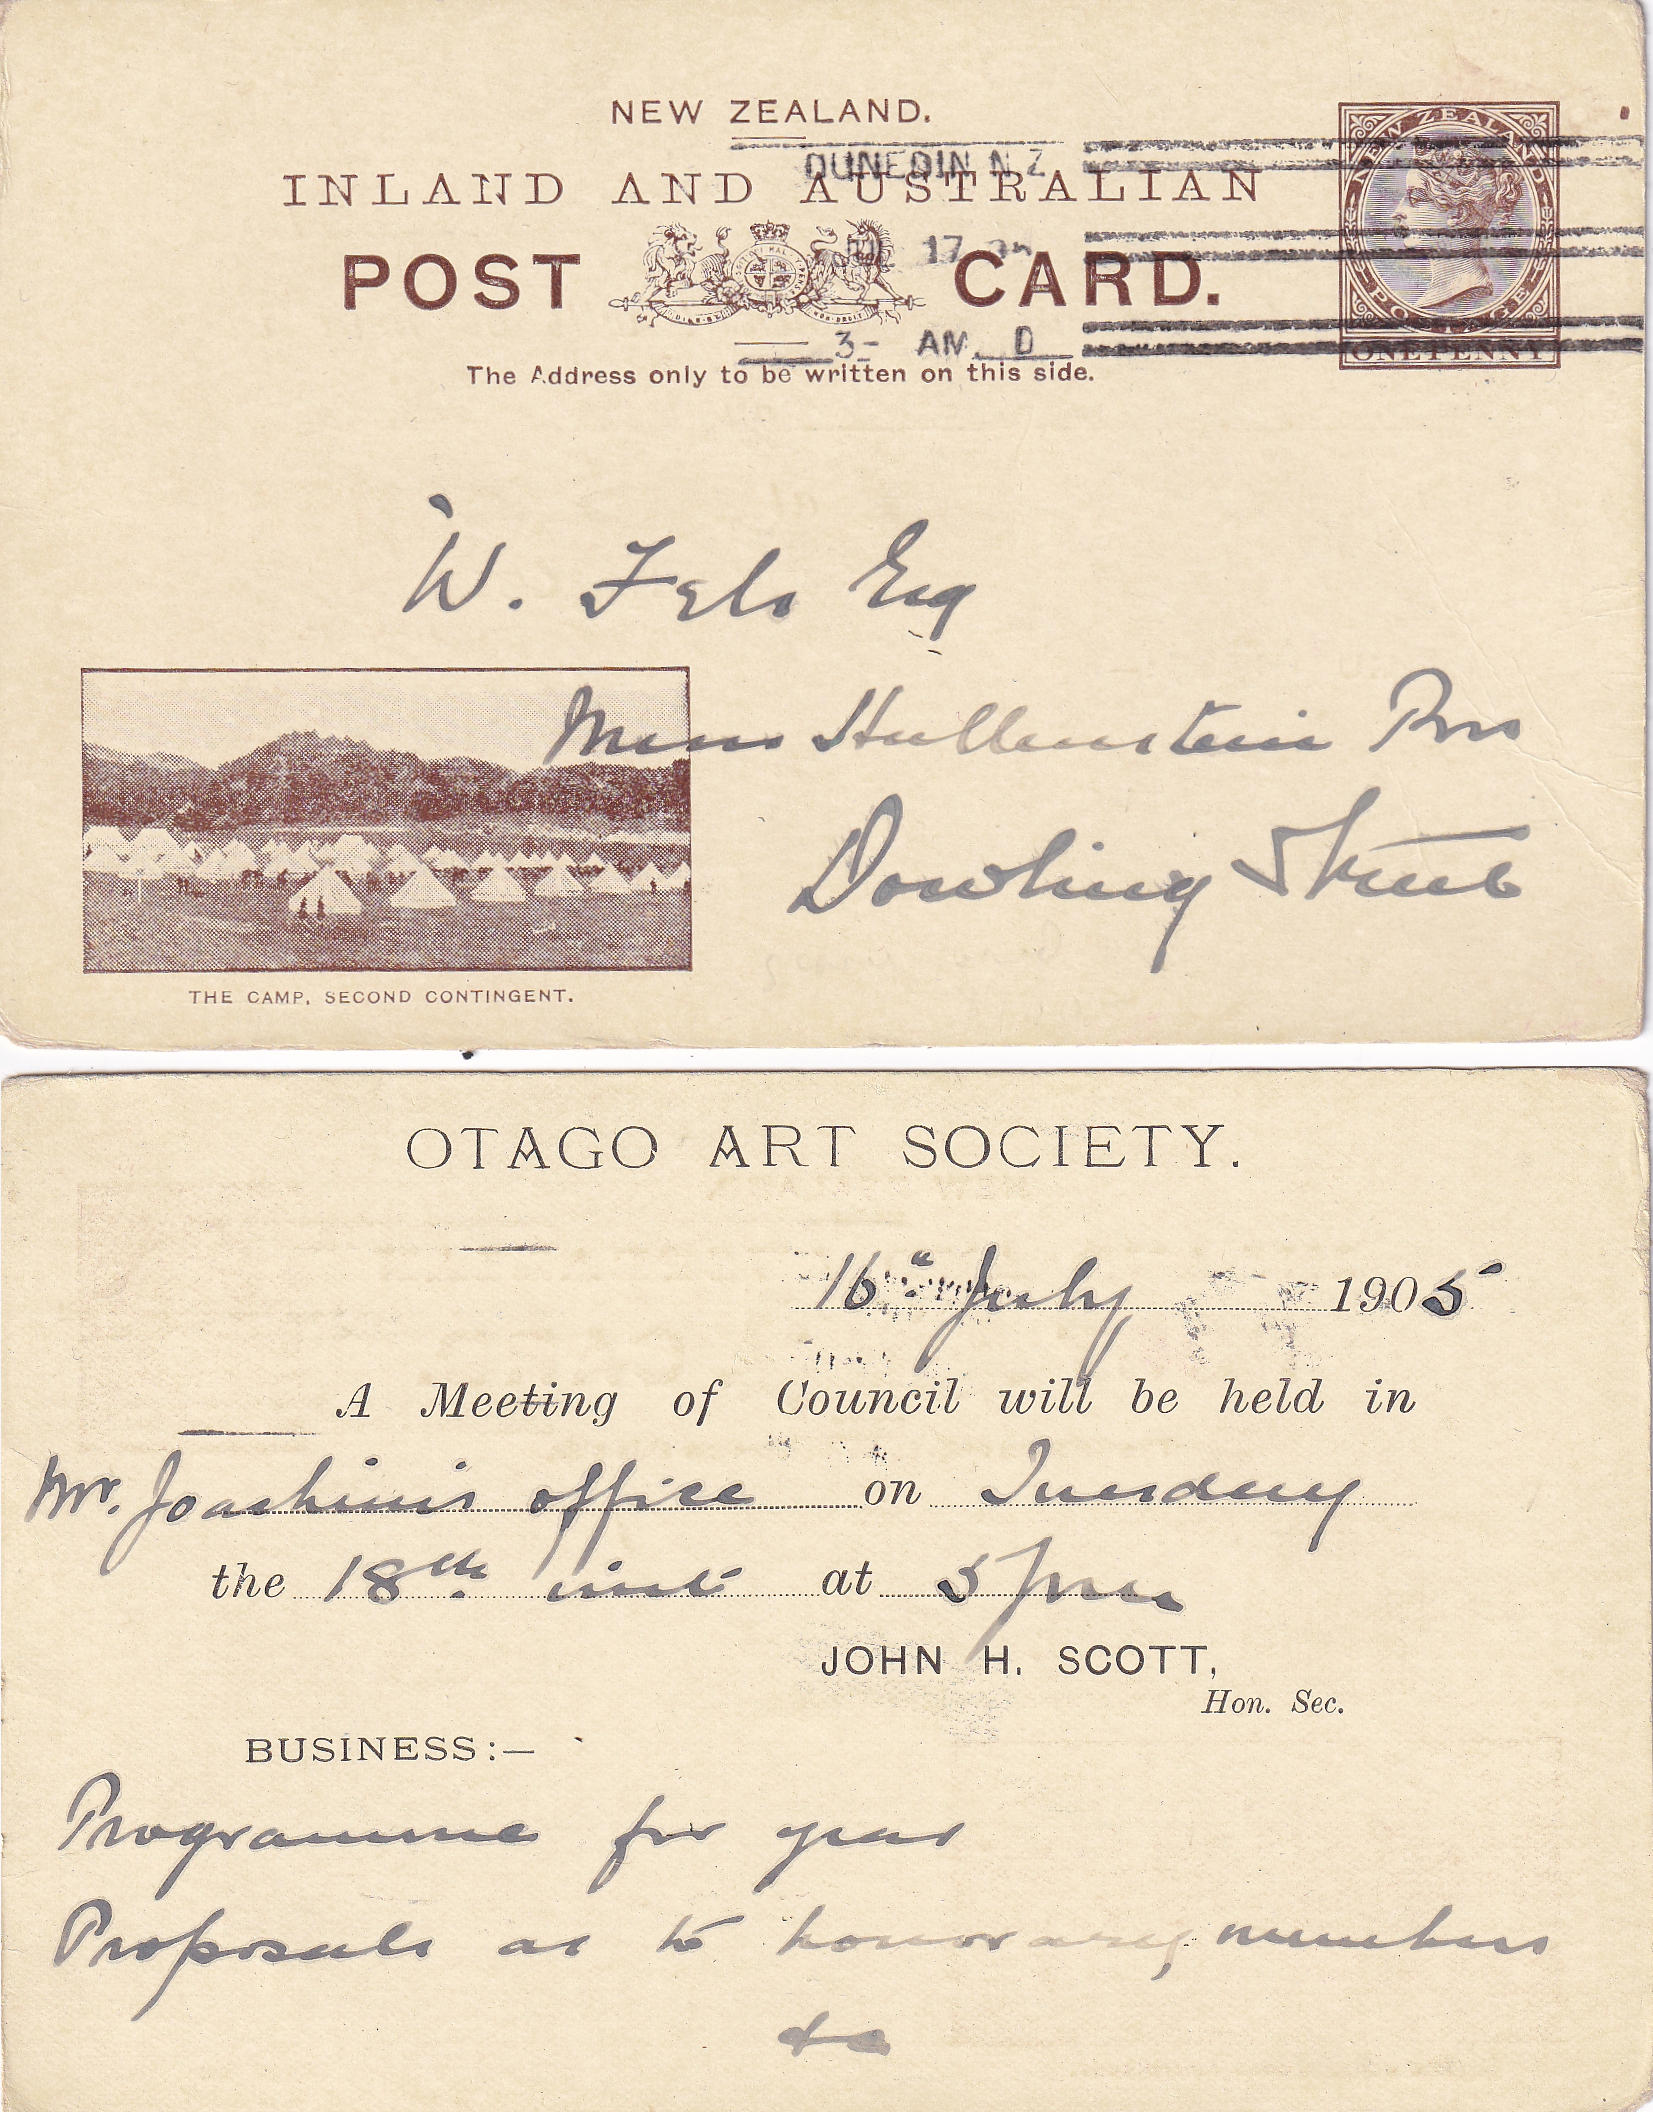 NEW ZEALAND.
DUNEDIN N.Z.
INLAND AND AUSTRALIAN
POST CARD.
JUL 17 05
3- AM. D
The Address only to be written on this side.
NEW ZEALAND
POSTAGE
ONE PENNY
W. Fels Esq
Messrs Hallenstein Bros
Dowling Street
THE CAMP, SECOND CONTINGENT.
OTAGO ART SOCIETY.
16th July 1905
A Meeting of Council will be held in
Mr. Joachim's office on Tuesday
the 18th inst at 5 pm
JOHN H. SCOTT,
Hon. Sec.
BUSINESS:—
Programme for year
Proposals as to honorary members
&c